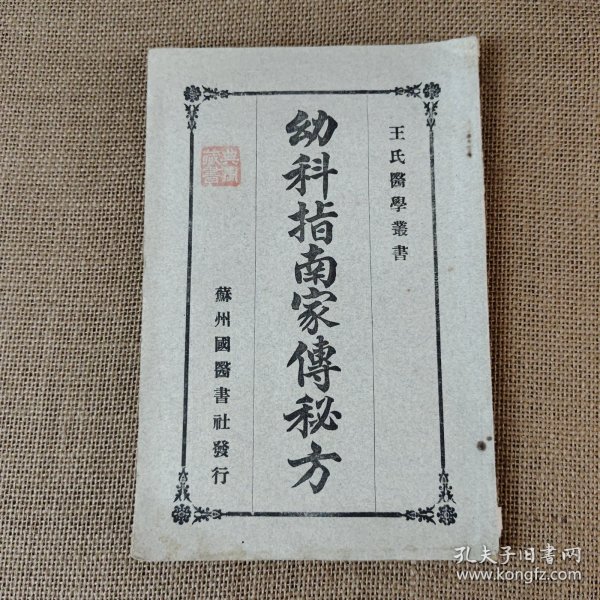 王氏醫學叢書
幼科指南家傳秘方
蘇州國醫書社發行
孔夫子旧书网
www.kongfz.com